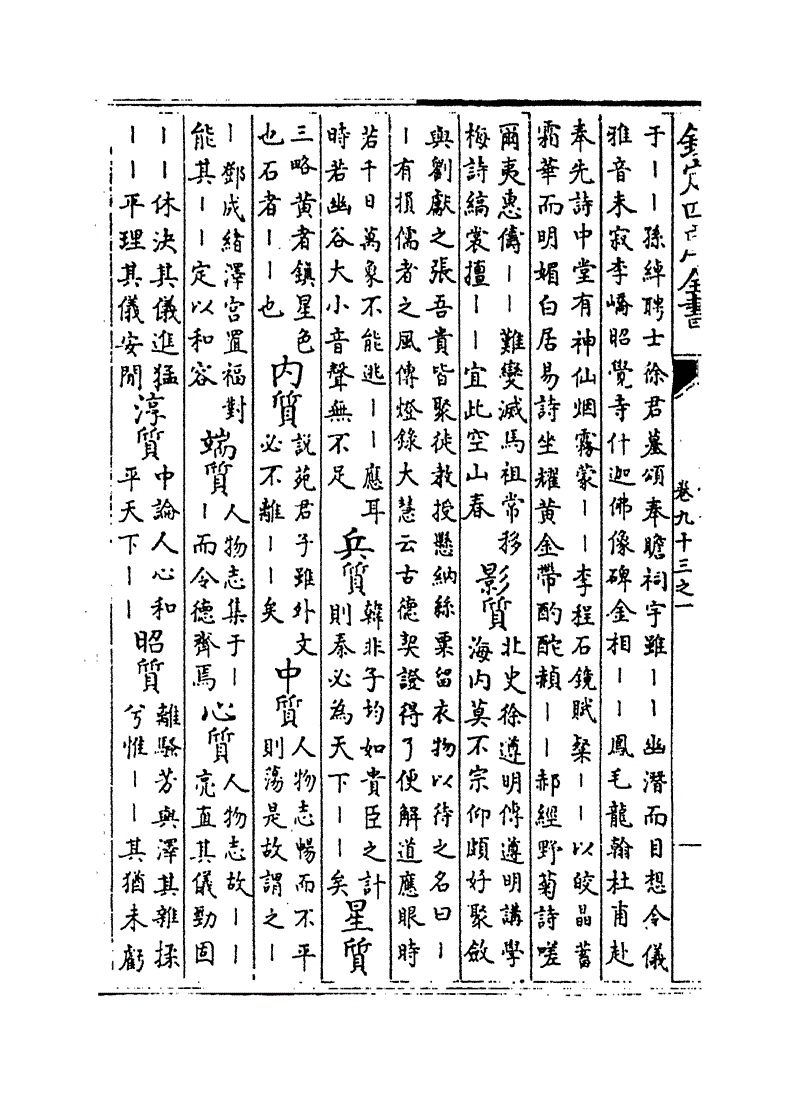 欽定四庫全書
卷九十三之一
一
于｜｜孫綽聘士徐君墓頌奉瞻祠宇雖｜｜幽潛而目想令儀
雅音未寂李嶠昭覺寺什迦佛像碑金相｜｜鳳毛龍翰杜甫赴
奉先詩中堂有神仙烟霧蒙｜｜李程石鏡賦粲｜｜以皎晶蓄
霜華而明媚白居易詩坐耀黃金帶酌酡赬｜｜郝經野菊詩嗟
爾夷惠儔｜｜難變滅馬祖常移
梅詩縞裳擅｜｜宜此空山春
影質
北史徐遵明傳遵明講學
海内莫不宗仰頗好聚斂
與劉獻之張吾貴皆聚徒教授懸納絲粟留衣物以待之名曰｜
｜有損儒者之風傳燈錄大慧云古德契證得了便解道應眼時
若千日萬象不能逃｜｜應耳
時若幽谷大小音聲無不足
兵質
韓非子均如貴臣之計
則秦必為天下｜｜矣
星質
三略黃者鎮星色
也石者｜｜也
内質
說苑君子雖外文
必不離｜｜矣
中質
人物志暢而不平
則蕩是故謂之｜
｜鄧成緒澤宫置福對
能其｜｜定以和容
端質
人物志集于｜
｜而令德齊焉
心質
人物志故｜｜
亮直其儀勁固
｜｜休決其儀進猛
｜｜平理其儀安閒
淳質
中論人心和
平天下｜｜
昭質
離騷芳與澤其雜揉
兮惟｜｜其猶未虧